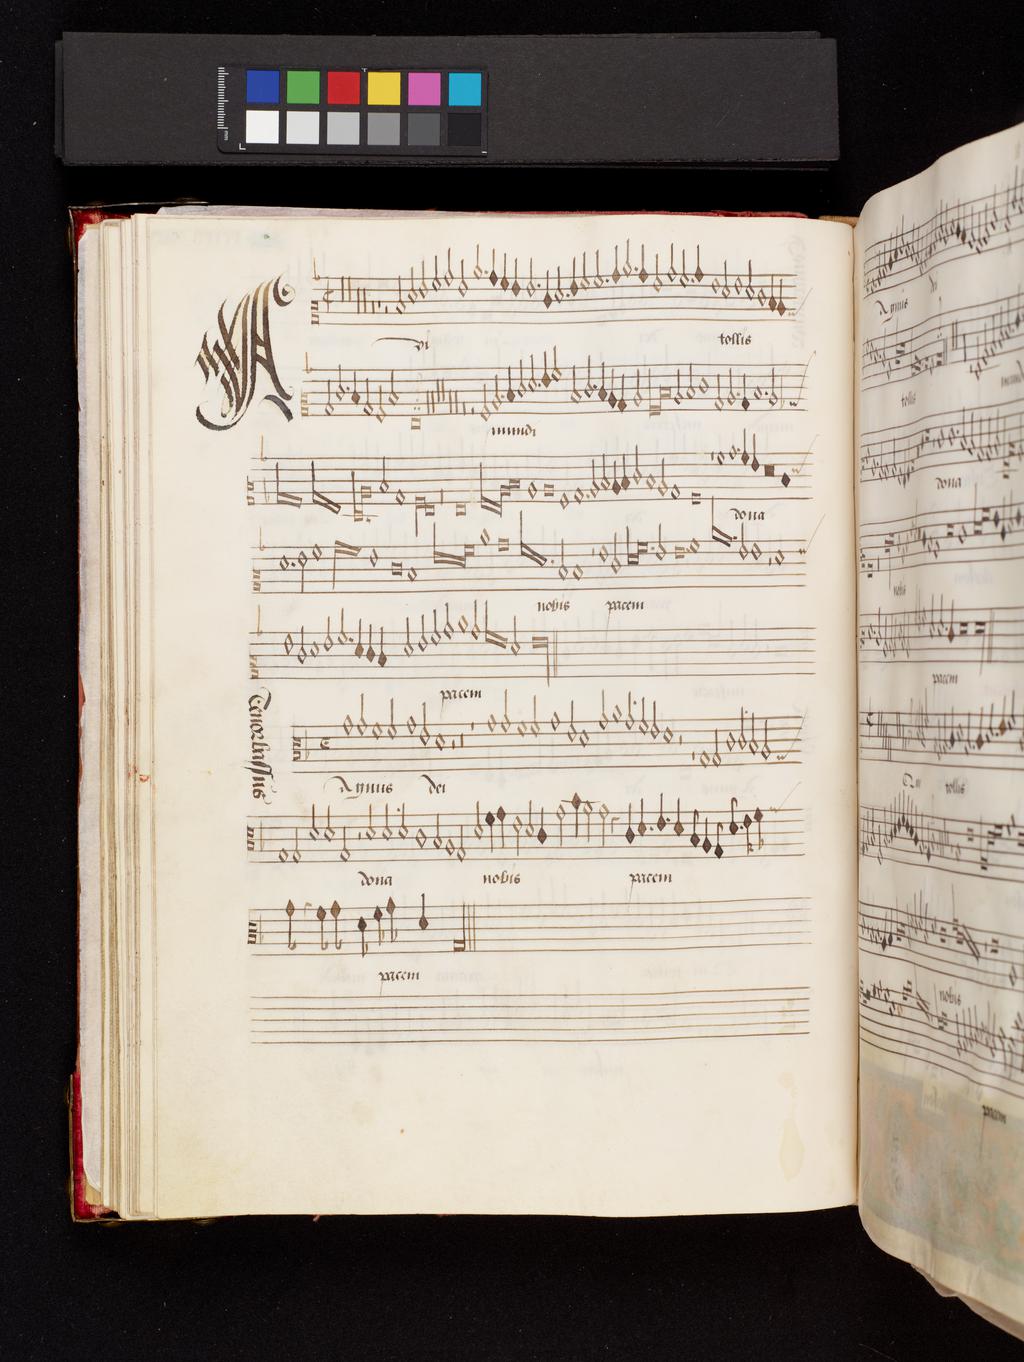 A
Di tollis
mundi
dona
nobis pacem
pacem
Tenorbassus
Agnus dei
dona nobis pacem
pacem
Agnus dei
tollis
dona
nobis
pacem
tollis
nobis